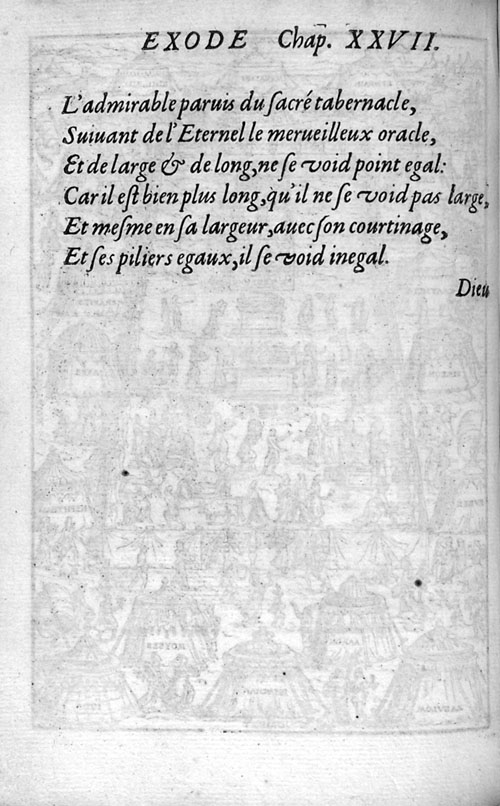 EXODE Chap. XXVII.
L'admirable paruis du ſacré tabernacle,
Suiuant de l'Eternel le merueilleux oracle,
Et de large & de long, ne ſe void point egal:
Car il eſt bien plus long, qu'il ne ſe void pas large,
Et meſme en ſa largeur, auec ſon courtinage,
Et ſes piliers egaux, il ſe void inegal.
Dieu